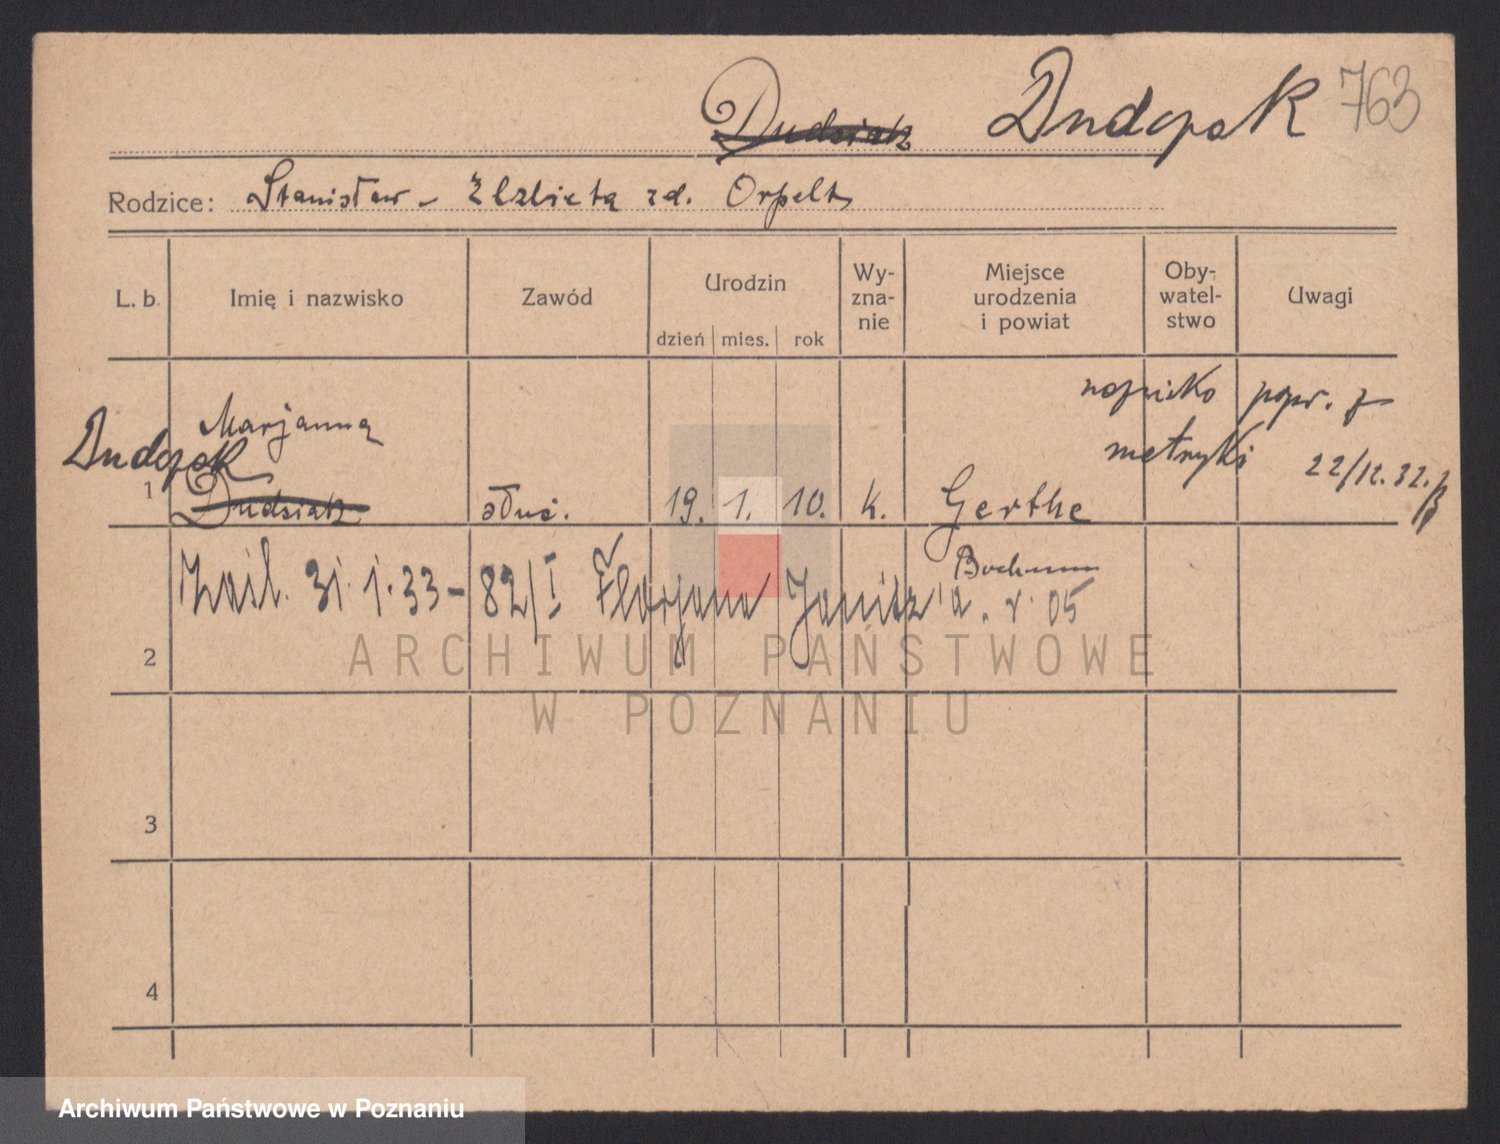 Dudziak Dudczak 763
Rodzice: Stanisław - Elzbieta zd. Orpelt
L. b. Imię i nazwisko Zawód Urodzin dzień mies. rok Wy-zna-nie Miejsce urodzenia i powiat Oby-watel-stwo Uwagi
nazwisko popr. z
Marjanna metryki 22/12.32.
Dudczak
1 Dudziak służ. 19. 1. 10. k. Gerthe
Bochum
31.1.33 - 82/I Florjana a. r. 05
2
ARCHIWUM PAŃSTWOWE
W POZNANIU
3
4
Archiwum Państwowe w Poznaniu